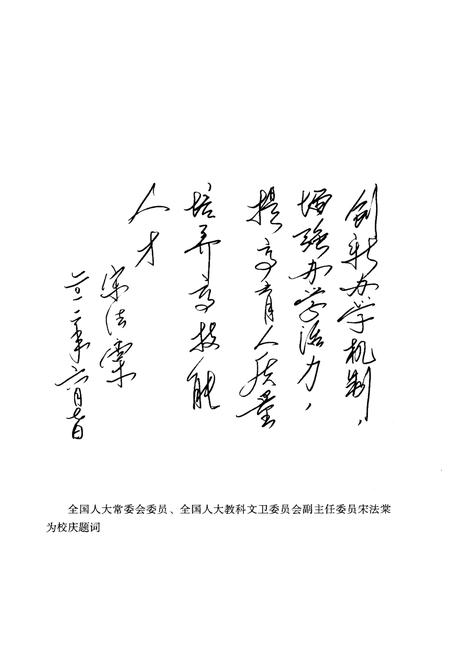 创新办学机制，
增强办学活力，
提高育人质量
培养高技能
人才
宋法棠
二〇一二年六月七日
全国人大常委会委员、全国人大教科文卫委员会副主任委员宋法棠
为校庆题词